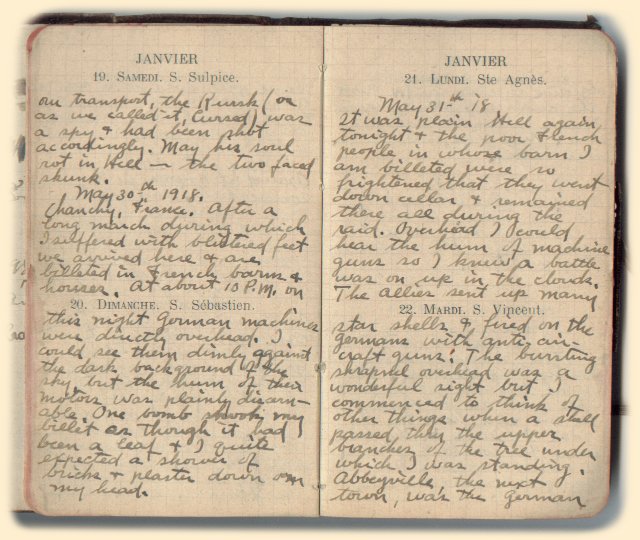 JANVIER
19. SAMEDI. S. Sulpice.
our transport, the Kursk (or
as we called it, Cursed) was
a spy & had been shot
accordingly. May his soul
rot in Hell – the two faced
skunk.
May 30th 1918.
Chanchy, France. After a
long march during which
I suffered with blistered feet
we arrived here & are
billeted in French barns &
houses. At about 10 P.M. on
20. DIMANCHE. S. Sébastien.
this night German machines
were directly overhead. I
could see them dimly against
the dark background of the
sky but the hum of their
motors was plainly discern-
able. One bomb shook my
billet as though it had
been a leaf & I quite
expected a shower of
bricks & plaster down on
my head.
JANVIER
21. LUNDI. Ste Agnès.
May 31st '18
It was plain Hell again
tonight & the poor French
people in whose barn I
am billeted were so
frightened that they went
down cellar & remained
there all during the
raid. Overhead I could
hear the hum of machine
guns so I knew a battle
was on up in the clouds.
The allies sent up many
22. MARDI. S. Vincent.
star shells & fired on the
germans with anti air-
craft guns. The bursting
shrapnel overhead was a
wonderful sight but I
commenced to think of
other things when a shell
passed thru the upper
branches of the tree under
which I was standing.
Abbeyville, the next
town, was the German